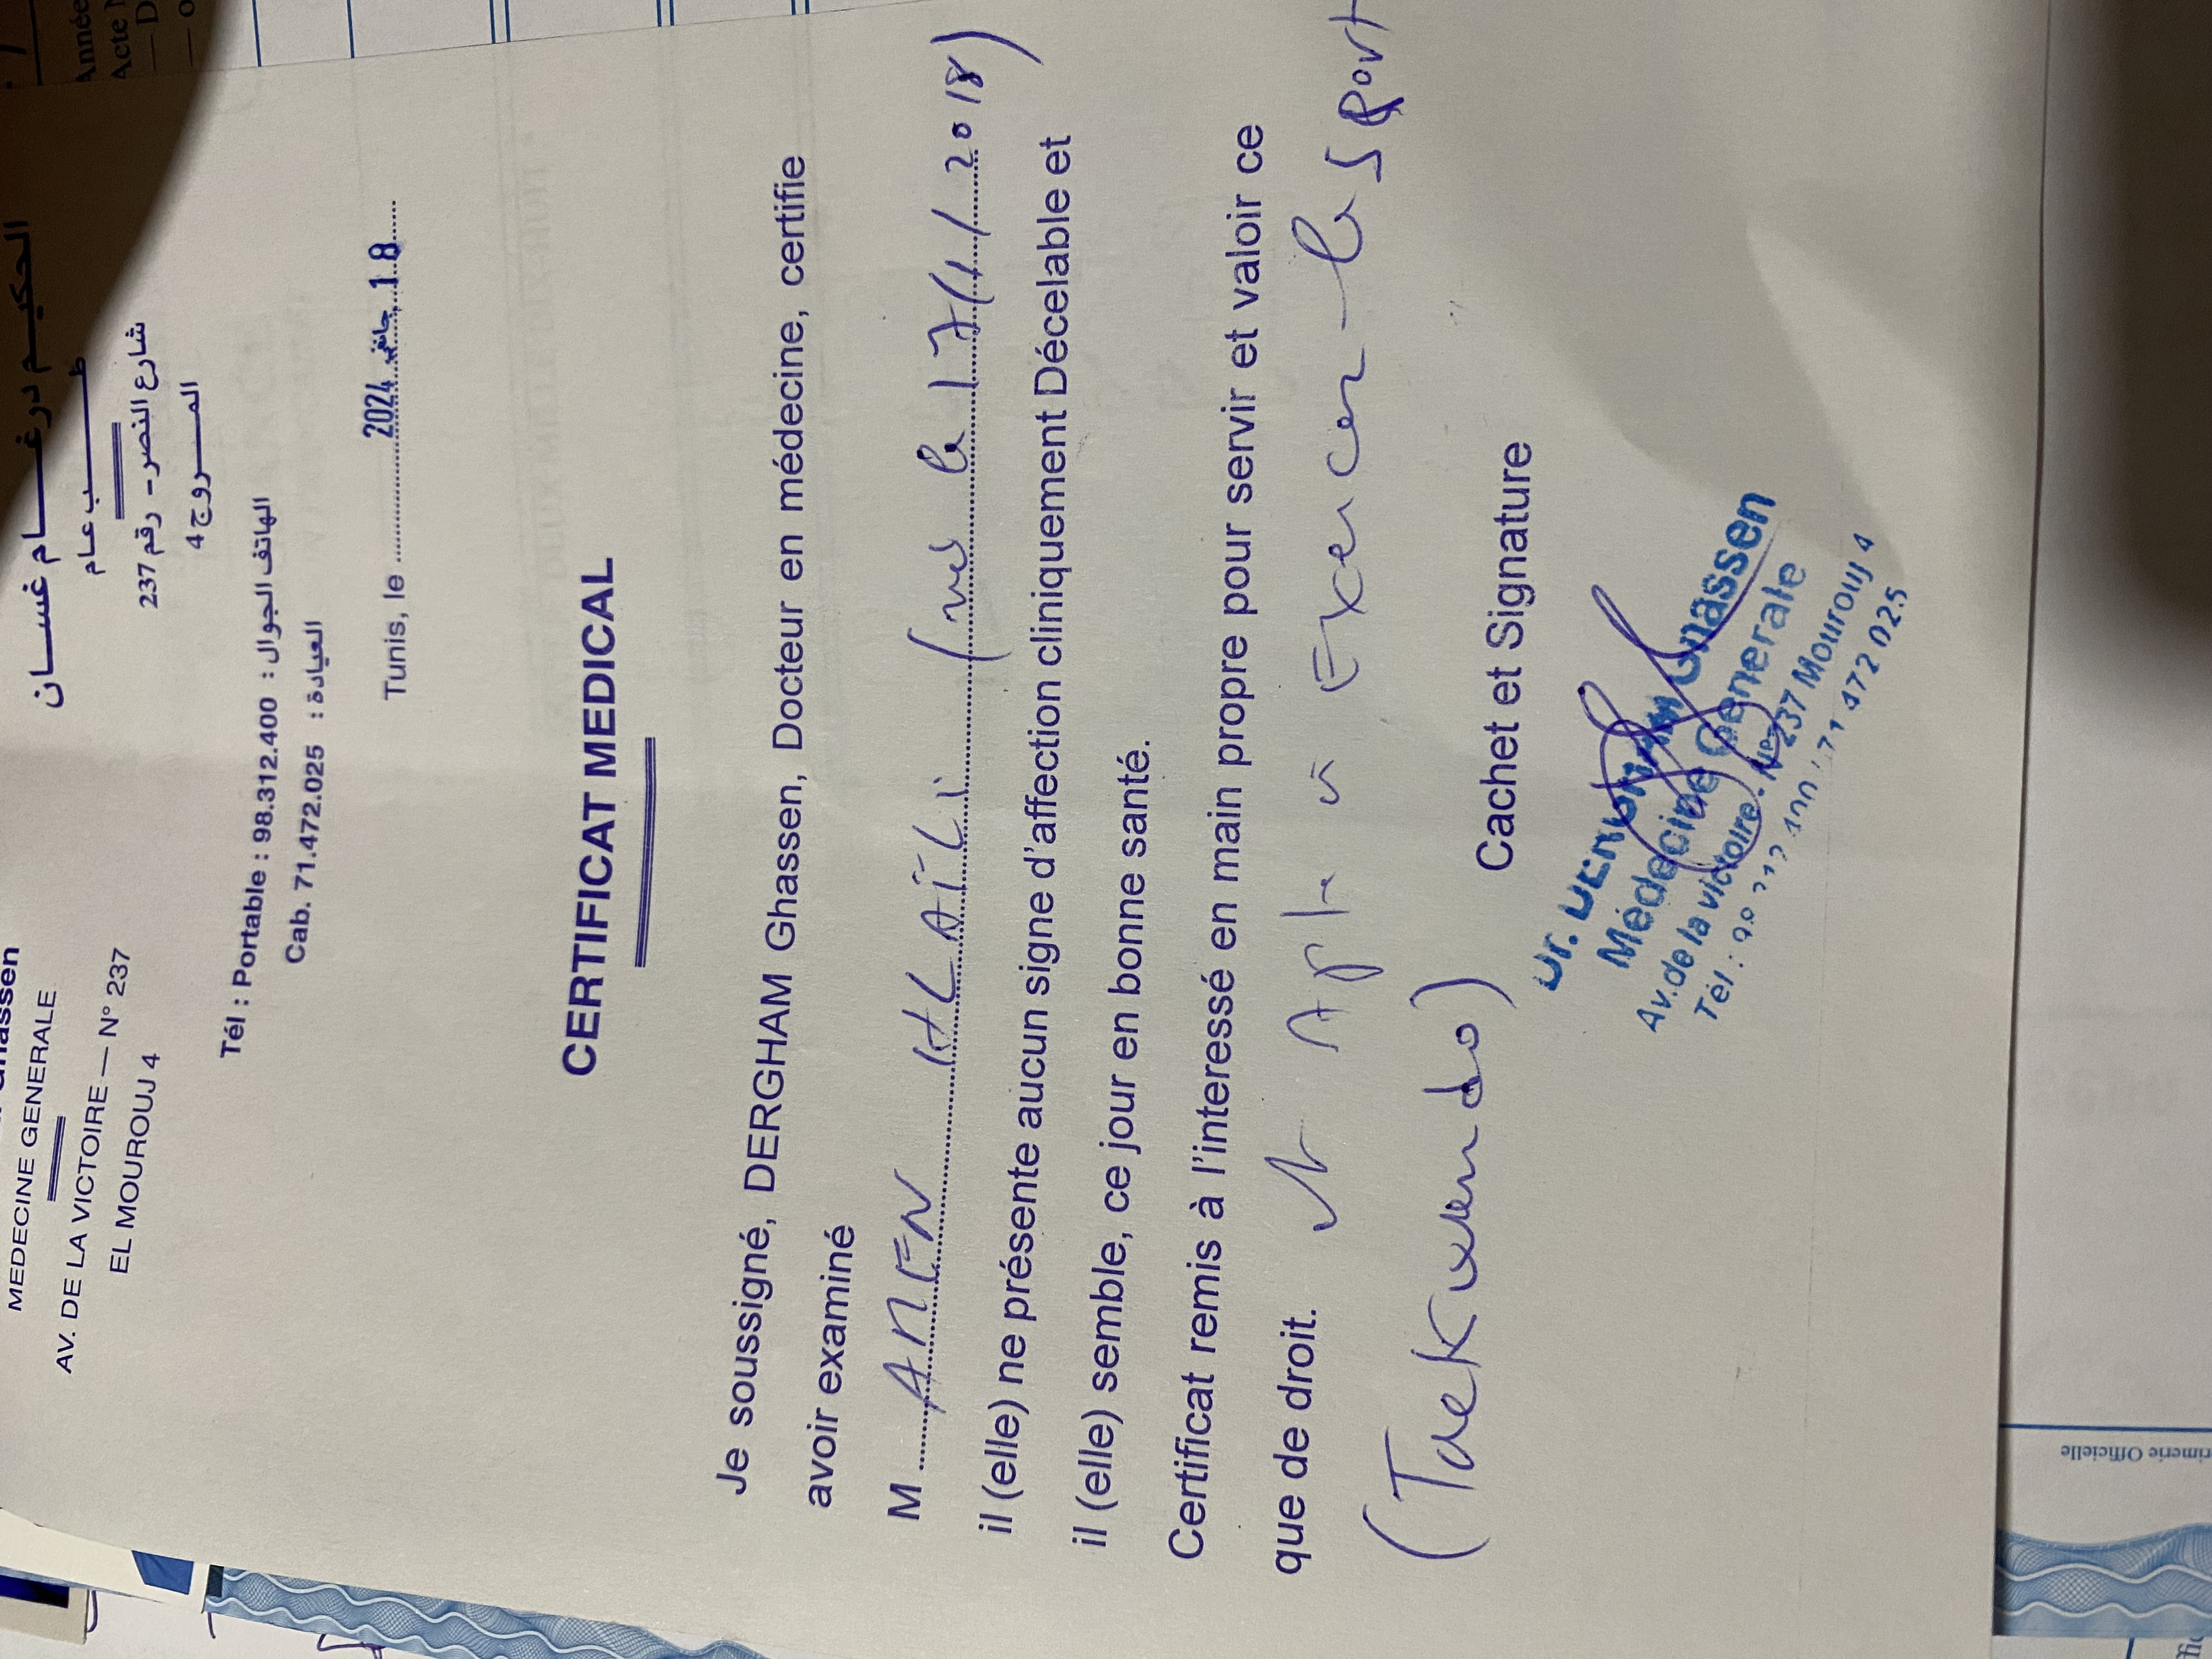 الحكيم درغام غسان
طب عام
شارع النصر - رقم 237
المروج 4
Ghassen
MEDECINE GENERALE
AV. DE LA VICTOIRE — N° 237
EL MOUROUJ 4
Tél : Portable : 98.312.400 : الهاتف الجوال
Cab. 71.472.025 : العيادة
Tunis, le 2024 جانفي 18
CERTIFICAT MEDICAL
Je soussigné, DERGHAM Ghassen, Docteur en médecine, certifie
avoir examiné
M AMEN HLAÏLI (né le 17/1/2018)
il (elle) ne présente aucun signe d'affection cliniquement Décelable et
il (elle) semble, ce jour en bonne santé.
Certificat remis à l'interessé en main propre pour servir et valoir ce
que de droit. et Apte à Exercer le sport
(Taekwendo)
Cachet et Signature
Dr. Ghassen
Médecine Generale
Av.de la victoire - N° 237 Mourouj 4
Tél : 71 472 025
Année
Acte N
rimerie Officielle